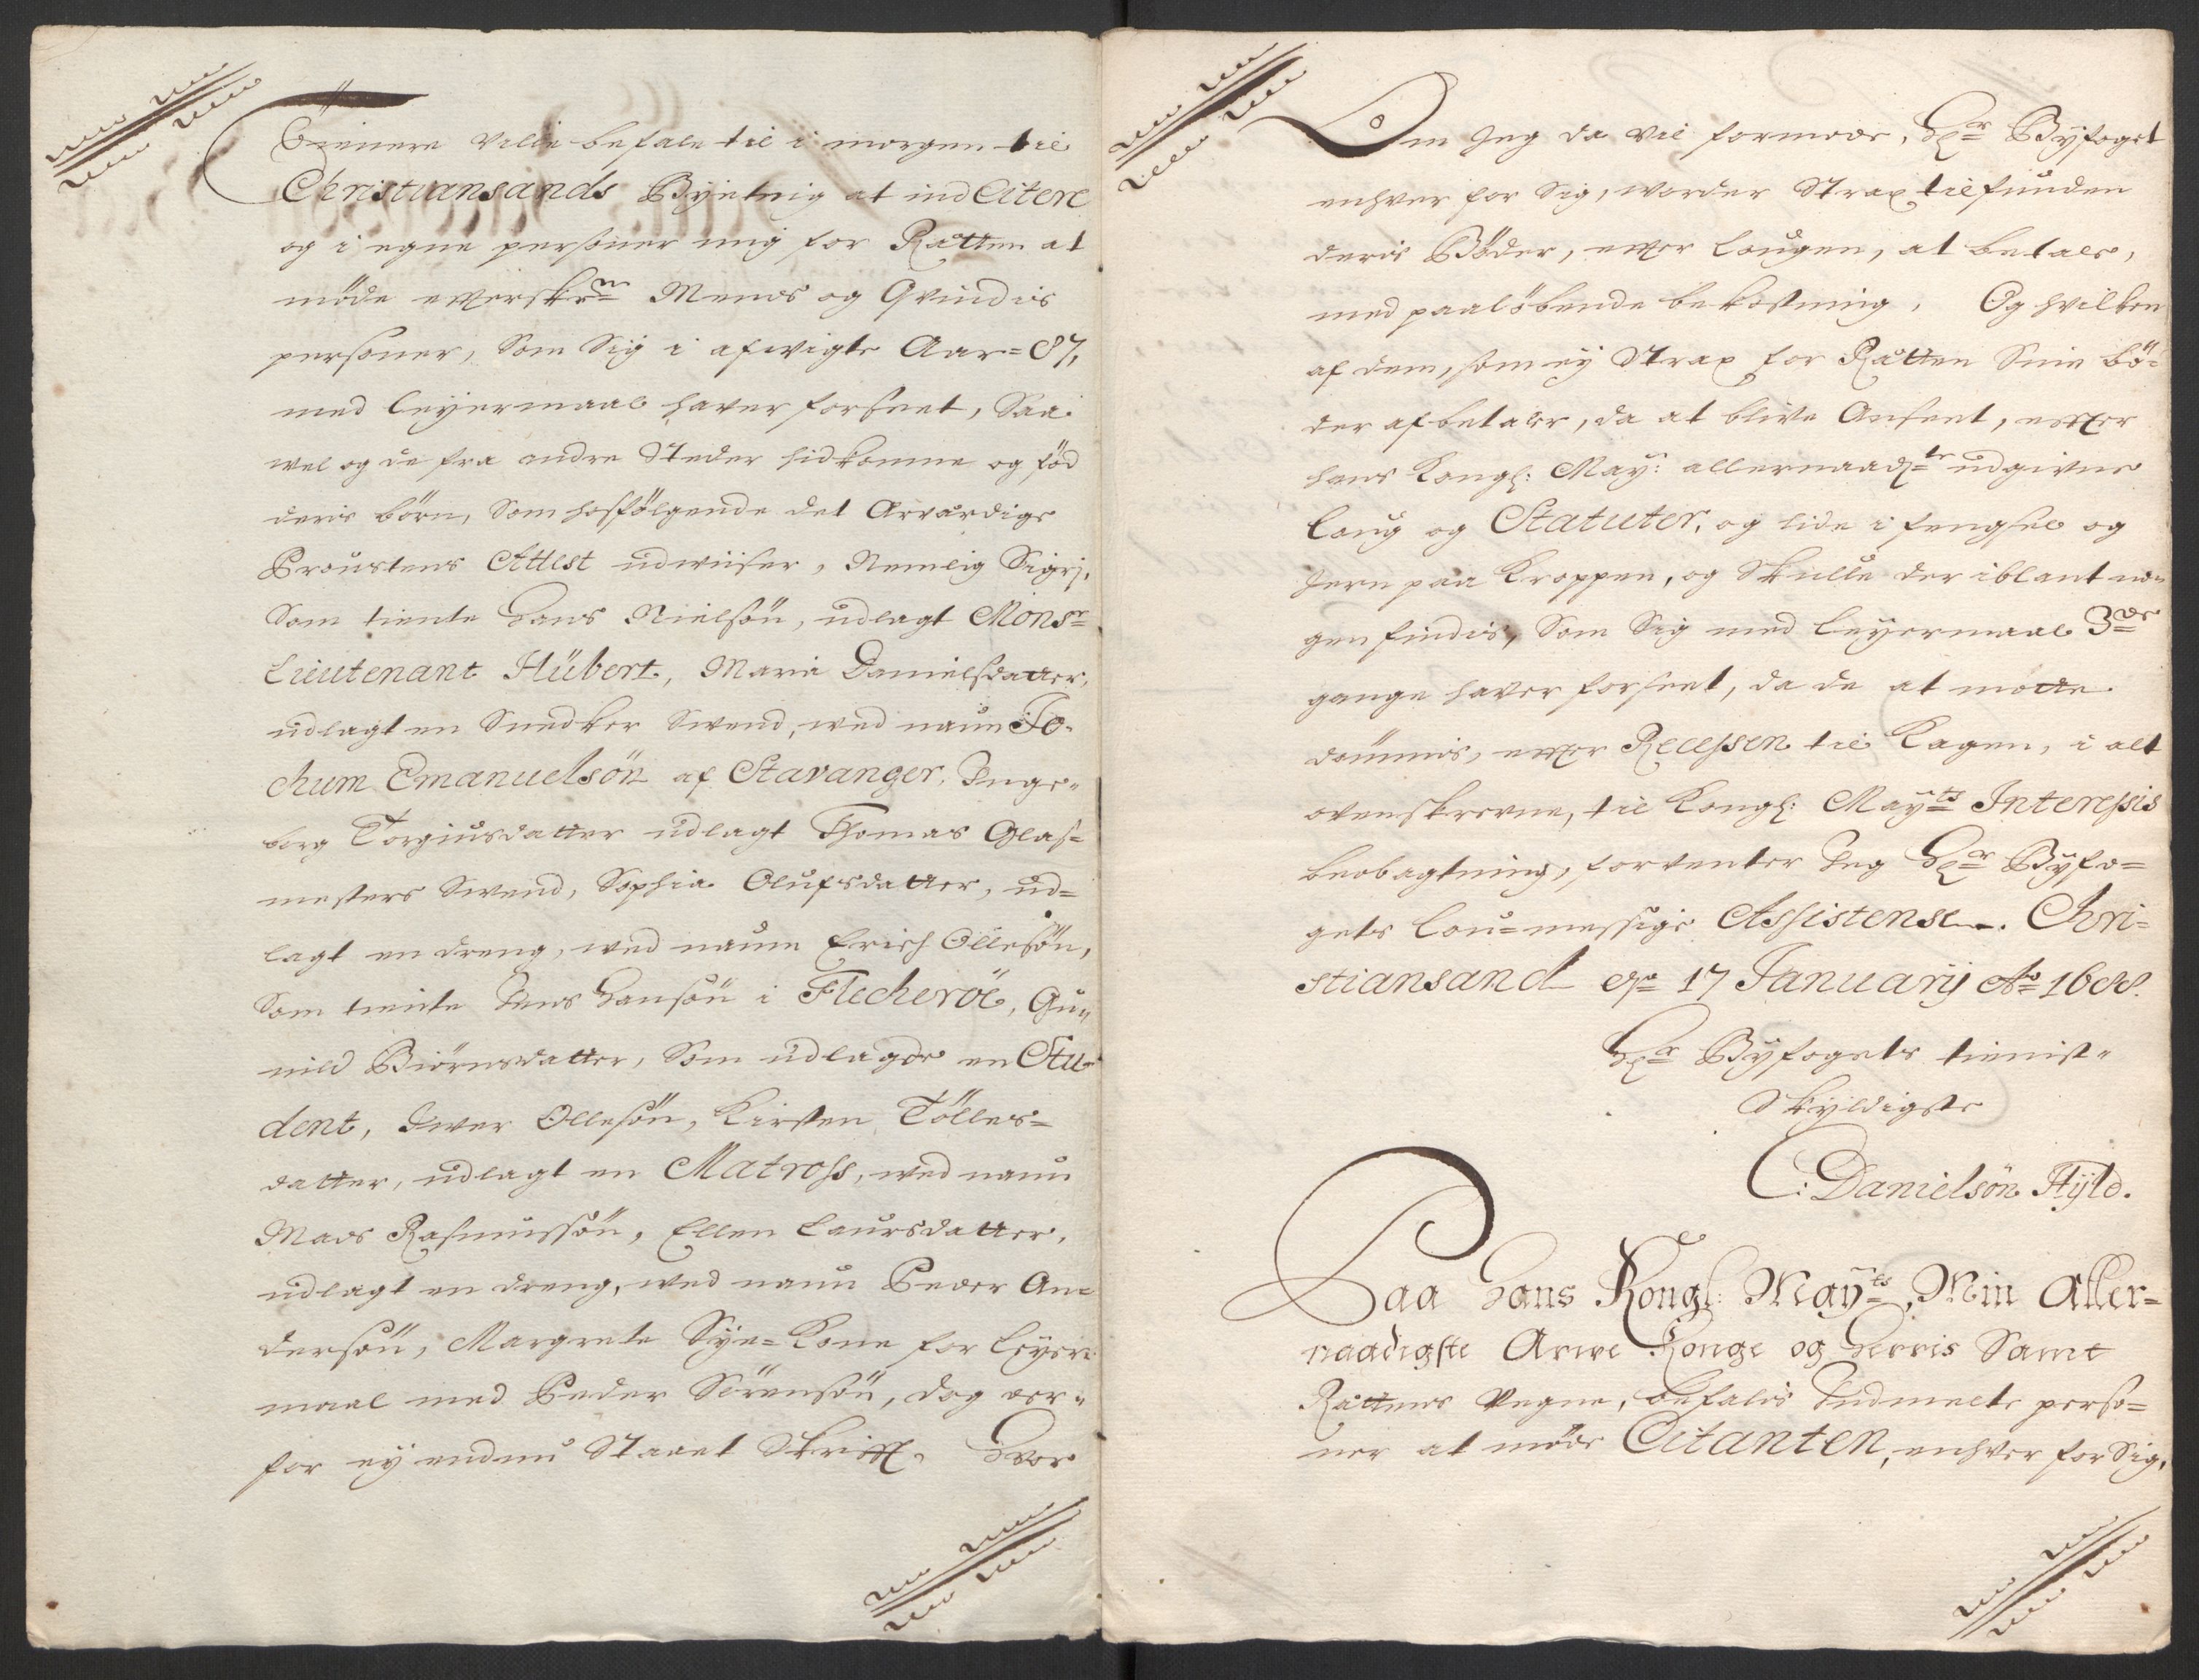 Tienere ville befale til i morgen til
Christiansands Byeting at ind Citere
og i egne personer mig for Rætten at
møde effterskrne Mends og Qvindis
personer, Som Sig i afwigte Aar=87,
med leyermaal haver forseet, Saa
vel og de fra andre Steder hidkomne og fød
deris børn, Som hosfølgende det Ærværdige
Proustens Attest udwiiser, Nemlig Sigri,
Som tiente Hans Nielsøn, udlagt Monsr
Lieutenant Hübert, Maria Danielsdatter,
udlagt en Snedker Swend, wed naun Jo-
chum Emanuelsön af Stavanger. Inge-
borg Torgiusdatter udlagt Thomas Glas-
mesters Swend, Sophia Olufsdatter, ud-
lagt en dreng, wed naun Erich Ollesøn,
Som tiente Jens Hansøn i Flecheröe, Gu-
nild Biørnsdatter, Som udlagde en Stu-
dent, Iwer Ollesøn, Kirsten Tølles-
datter, udlagt en Matross, wed naun
Mads Rasmussøn, Ellen Laursdatter,
udlagt en dreng, wed naun Peder An-
dersøn, Margrete Sye=Kone for leyer-
maal med Peder Sørensøn, dog der-
for ey endnu Staaet Skrifft. Hvor
Om Jeg da vil formode, Hr Byfoget
enhver for Sig, worder Strax tilfunden
deris Bøder, effter Lougen, at betale,
med paaløbende bekostning, Og hvilken
af dem, som ey Strax for Rætten Sine bø-
der afbetaler, da at blive Anseet, effter
hans Kongl: May: allernaadste udgivne
Loug og Statuter, og lide i fengsel og
Jern paa Kroppen, og Skulle der iblant no-
gen findis, Som Sig med leyermaal 3de
gange haver forseet, da de at motte
dømmis, effter Recessen til Kagen, i alt
ovenskrevne, til Kongl: Mayts Interessis
beobagtning, forventer Jeg Hr Byfo-
gets Lou=messige Assistense. Chri-
stiansand d 17 Januarij Ao 1688.
Hr Byfogets tienist-
Skyldigste
C: Danielsön Hyld.
Paa Hans Kongl: Mayts Min Aller-
naadigste Arwe Konge og Herris Samt
Rættens Vegne, befalis Indmelte perso-
ner at møde Citanten, enhver for Sig,